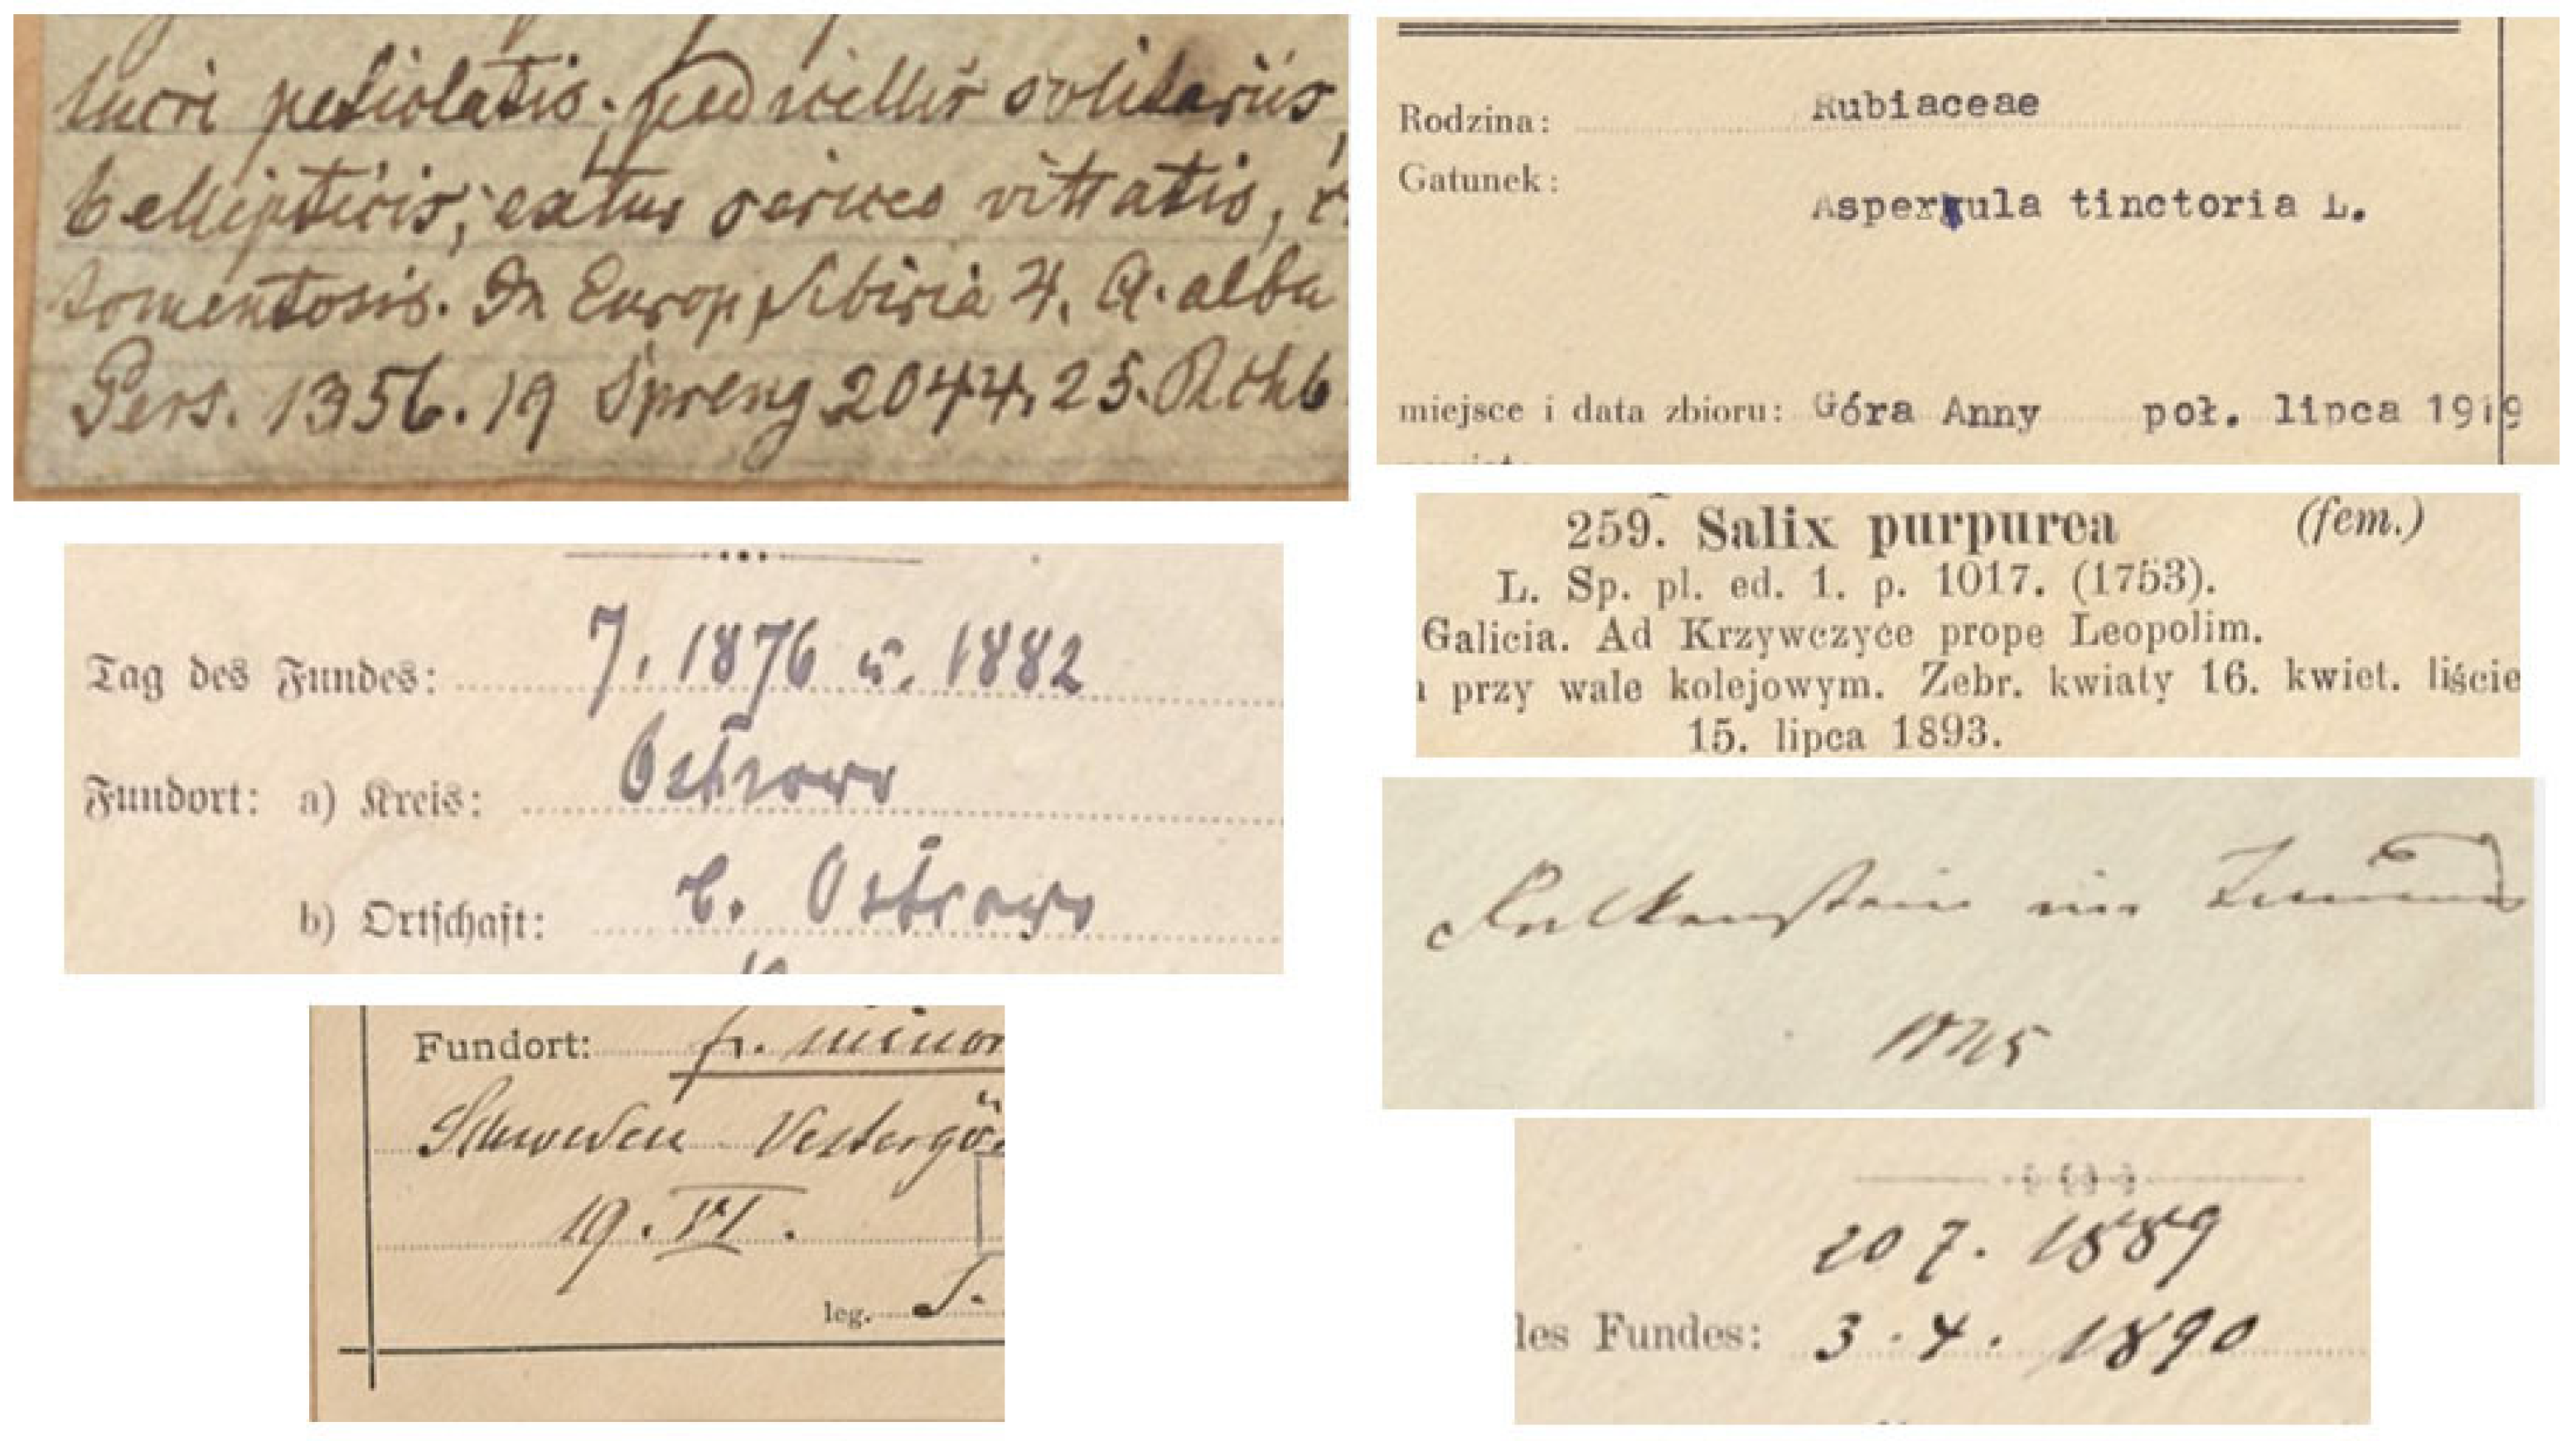 petiolatis; pedicellis solitariis,
ellipticis, extus sericeo vittatis,
tomentosis. In Europ Sibiria 4. A. alba
Pers. 1356. 19 Spreng 2044. 25.
Rodzina: Rubiaceae
Gatunek:
Asperula tinctoria L.
miejsce i data zbioru: Góra Anny poł. lipca 1919
259. Salix purpurea (fem.)
L. Sp. pl. ed. 1. p. 1017. (1753).
Galicia. Ad Krzywczyce prope Leopolim.
przy wale kolejowym. Zebr. kwiaty 16. kwiet. liście
15. lipca 1893.
Tag des Fundes: 7. 1876 u. 1882
Fundort: a) Kreis: Ostrowo
b) Ortschaft: b. Ostrowo
Falkenstein im
1845
Fundort: fr. minor
Schweden Vestergö
19. VI.
leg. S.
20 7. 1889
des Fundes: 3. 4. 1890